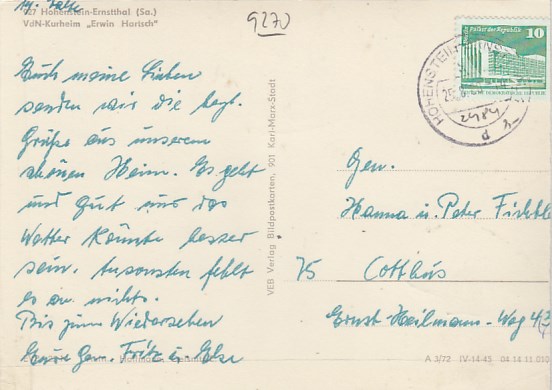 927 Hohenstein-Ernstthal (Sa.)
VdN-Kurheim „Erwin Hartsch"
9270
Euch meine Lieben
senden wir die hzgl.
Grüße aus unserem
schönen Heim. Es geht
und gut und das
Wetter könnte besser
sein. Ansonsten fehlt
es an nichts.
Bis zum Wiedersehen
Eure Gen. Fritz u. Else
VEB Verlag Bildpostkarten, 901 Karl-Marx-Stadt
Palast der Republik
10
HOHENSTEIN
Gen.
Hanna u. Peter
75 Cottbus
Ernst-Heilmann-Weg
A 3/72 IV-14-45 04 14 11 010